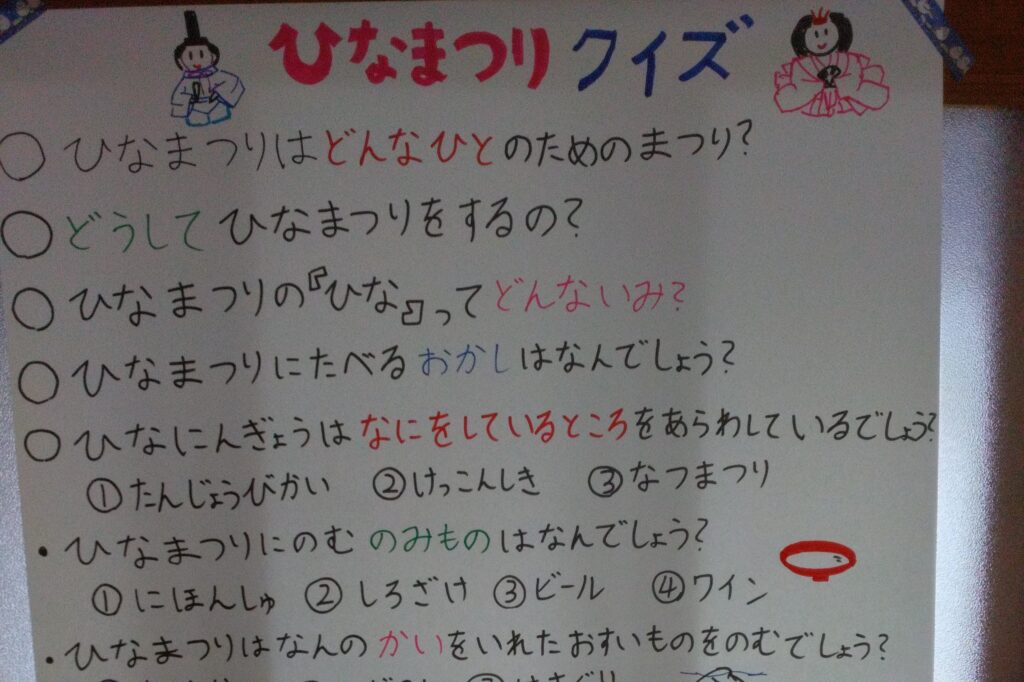 ひなまつりクイズ
○ひなまつりはどんなひとのためのまつり?
○どうしてひなまつりをするの?
○ひなまつりの『ひな』ってどんないみ?
○ひなまつりにたべるおかしはなんでしょう?
○ひなにんぎょうはなにをしているところをあらわしているでしょう?
①たんじょうびかい ②けっこんしき ③なつまつり
・ひなまつりにのむのみものはなんでしょう?
①にほんしゅ ②しろざけ ③ビール ④ワイン
・ひなまつりはなんのかいをいれたおすいものをのむでしょう?